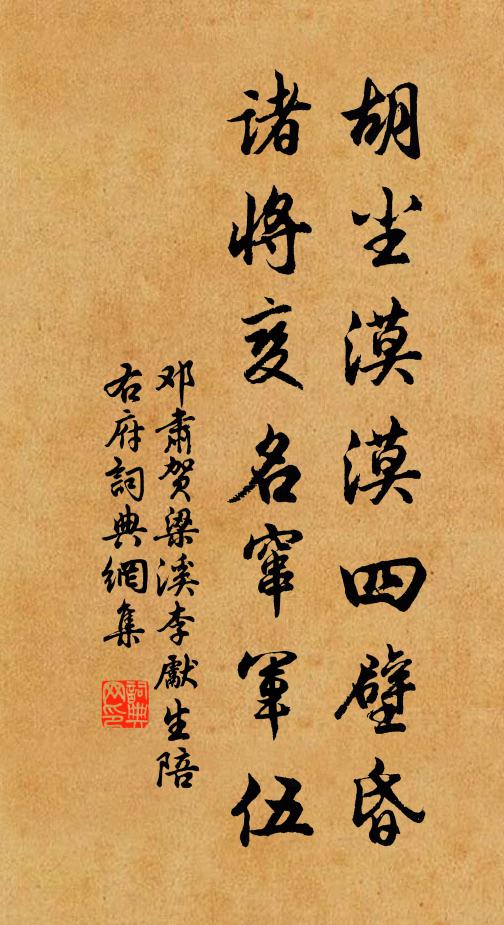 胡尘漠漠四壁昏
诸将变名窜军伍
邓肃贺梁溪李献生陪
右府詞典網集
詞典网印